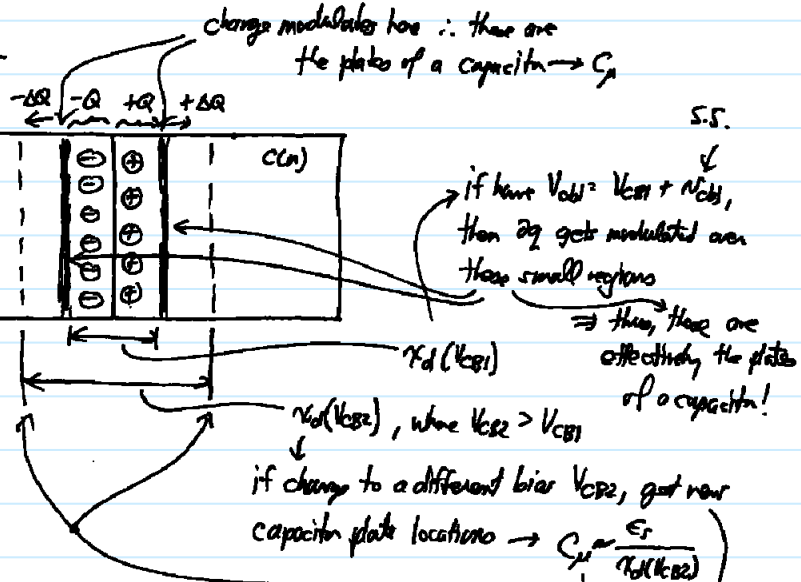 charge modulates here ∴ these are
the plates of a capacitor → Cμ
-ΔQ -Q +Q +ΔQ
S.S.
C(n)
if have Vcb1 = VCB1 + vcb1,
then ∂q gets modulated over
these small regions
⇒ thus, these are
effectively the plates
of a capacitor!
xd(VCB1)
xd(VCB2), where VCB2 > VCB1
if change to a different bias VCB2, get new
capacitor plate locations → Cμ ~ εs / xd(VCB2)